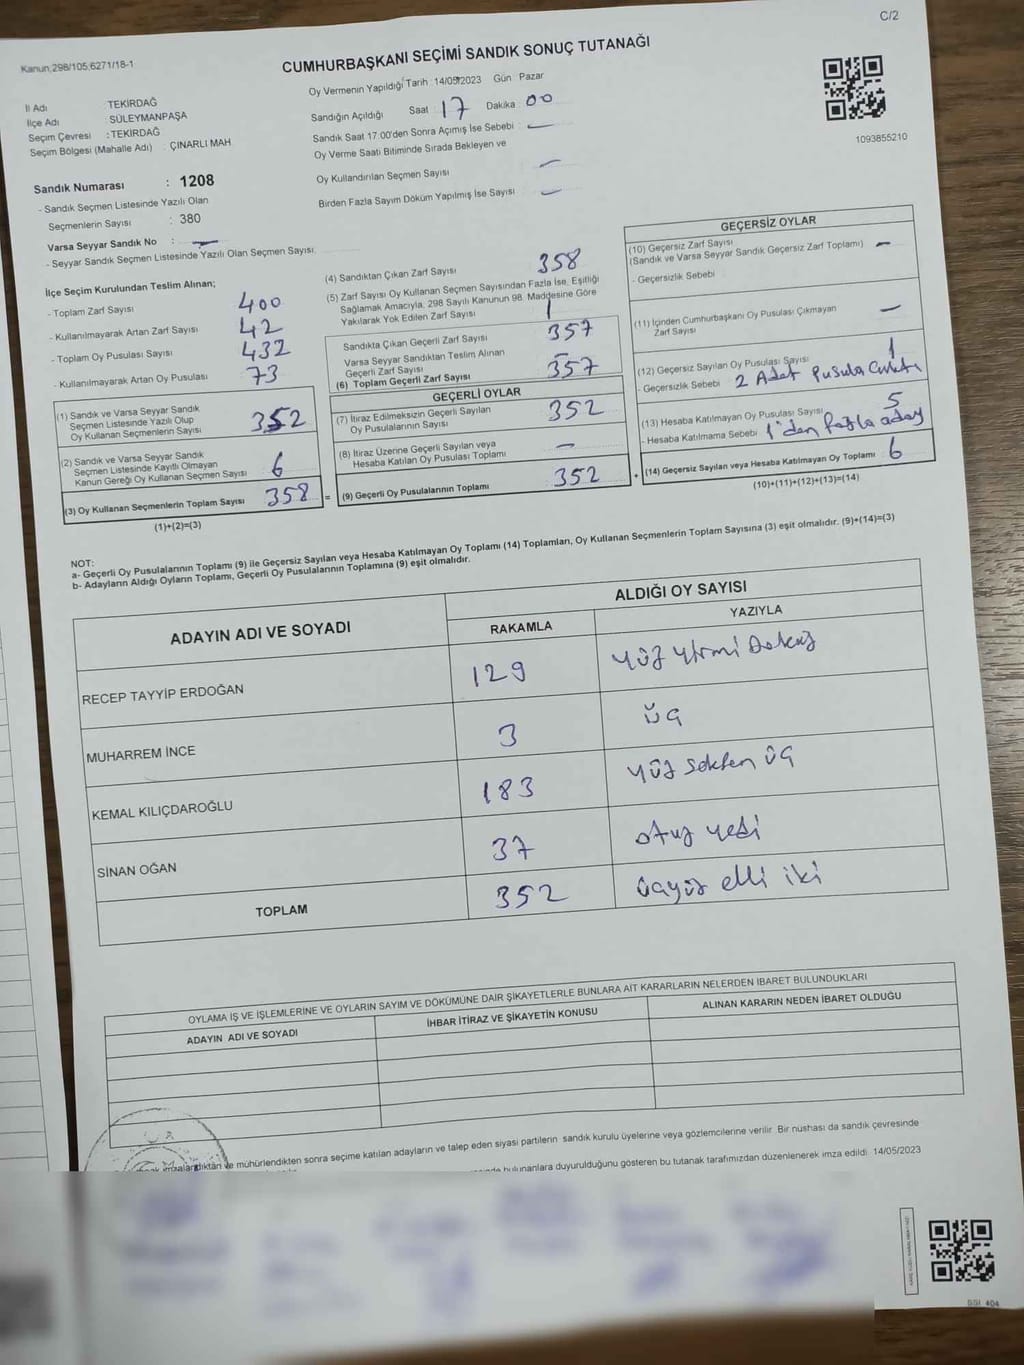 C/2
Kanun,298/105,6271/18-1
CUMHURBAŞKANI SEÇİMİ SANDIK SONUÇ TUTANAĞI
İl Adı TEKİRDAĞ
İlçe Adı : SÜLEYMANPAŞA
Seçim Çevresi : TEKİRDAĞ
Seçim Bölgesi (Mahalle Adı) : ÇINARLI MAH
Oy Vermenin Yapıldığı Tarih : 14/05/2023 Gün Pazar
Sandığın Açıldığı Saat 17 Dakika 00
Sandık Saat 17:00'den Sonra Açımış İse Sebebi : —
Oy Verme Saati Bitiminde Sırada Bekleyen ve
Oy Kullandırılan Seçmen Sayısı —
Birden Fazla Sayım Döküm Yapılmış İse Sayısı —
1093855210
Sandık Numarası : 1208
- Sandık Seçmen Listesinde Yazılı Olan
Seçmenlerin Sayısı : 380
Varsa Seyyar Sandık No : —
- Seyyar Sandık Seçmen Listesinde Yazılı Olan Seçmen Sayısı:
İlçe Seçim Kurulundan Teslim Alınan;
- Toplam Zarf Sayısı 400
- Kullanılmayarak Artan Zarf Sayısı 42
- Toplam Oy Pusulası Sayısı 432
- Kullanılmayarak Artan Oy Pusulası 73
(1) Sandık ve Varsa Seyyar Sandık
Seçmen Listesinde Yazılı Olup
Oy Kullanan Seçmenlerin Sayısı 352
(2) Sandık ve Varsa Seyyar Sandık
Seçmen Listesinde Kayıtlı Olmayan
Kanun Gereği Oy Kullanan Seçmen Sayısı 6
(3) Oy Kullanan Seçmenlerin Toplam Sayısı 358 =
(1)+(2)=(3)
(4) Sandıktan Çıkan Zarf Sayısı 358
(5) Zarf Sayısı Oy Kullanan Seçmen Sayısından Fazla İse, Eşitliği
Sağlamak Amacıyla, 298 Sayılı Kanunun 98. Maddesine Göre
Yakılarak Yok Edilen Zarf Sayısı 1
Sandıkta Çıkan Geçerli Zarf Sayısı 357
Varsa Seyyar Sandıktan Teslim Alınan
Geçerli Zarf Sayısı —
(6) Toplam Geçerli Zarf Sayısı 357
GEÇERLİ OYLAR
(7) İtiraz Edilmeksizin Geçerli Sayılan
Oy Pusulalarının Sayısı 352
(8) İtiraz Üzerine Geçerli Sayılan veya
Hesaba Katılan Oy Pusulası Toplamı —
(9) Geçerli Oy Pusulalarının Toplamı 352 +
GEÇERSİZ OYLAR
(10) Geçersiz Zarf Sayısı
(Sandık ve Varsa Seyyar Sandık Geçersiz Zarf Toplamı) —
- Geçersizlik Sebebi
(11) İçinden Cumhurbaşkanı Oy Pusulası Çıkmayan
Zarf Sayısı —
(12) Geçersiz Sayılan Oy Pusulası Sayısı 1
- Geçersizlik Sebebi 2 Adet pusula
(13) Hesaba Katılmayan Oy Pusulası Sayısı 5
- Hesaba Katılmama Sebebi 1'den fazla aday
(14) Geçersiz Sayılan veya Hesaba Katılmayan Oy Toplamı 6
(10)+(11)+(12)+(13)=(14)
NOT:
a- Geçerli Oy Pusulalarının Toplamı (9) ile Geçersiz Sayılan veya Hesaba Katılmayan Oy Toplamı (14) Toplamları, Oy Kullanan Seçmenlerin Toplam Sayısına (3) eşit olmalıdır. (9)+(14)=(3)
b- Adayların Aldığı Oyların Toplamı, Geçerli Oy Pusulalarının Toplamına (9) eşit olmalıdır.
ADAYIN ADI VE SOYADI
ALDIĞI OY SAYISI
RAKAMLA YAZIYLA
RECEP TAYYİP ERDOĞAN 129 Yüz yirmi Dokuz
MUHARREM İNCE 3 üç
KEMAL KILIÇDAROĞLU 183 Yüz seksen üç
SİNAN OĞAN 37 otuz yedi
TOPLAM 352 üçyüz elli iki
OYLAMA İŞ VE İŞLEMLERİNE VE OYLARIN SAYIM VE DÖKÜMÜNE DAİR ŞİKAYETLERLE BUNLARA AİT KARARLARIN NELERDEN İBARET BULUNDUKLARI
ADAYIN ADI VE SOYADI İHBAR İTİRAZ VE ŞİKAYETİN KONUSU ALINAN KARARIN NEDEN İBARET OLDUĞU
ve mühürlendikten sonra seçime katılan adayların ve talep eden siyasi partilerin sandık kurulu üyelerine veya gözlemcilerine verilir. Bir nüshası da sandık çevresinde
bulunanlara duyurulduğunu gösteren bu tutanak tarafımızdan düzenlenerek imza edildi. 14/05/2023
SSI 404